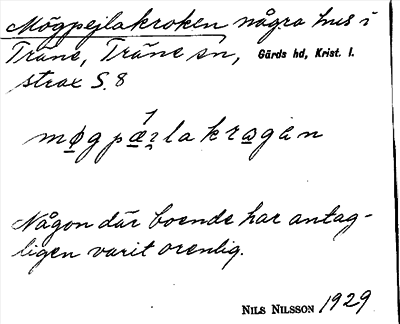 Mögpejlakroken några hus i
Träne, Träne sn, Gärds hd, Krist. l.
strax S. 8
Någon där boende har antag-
ligen varit orenlig.
NILS NILSSON 1929